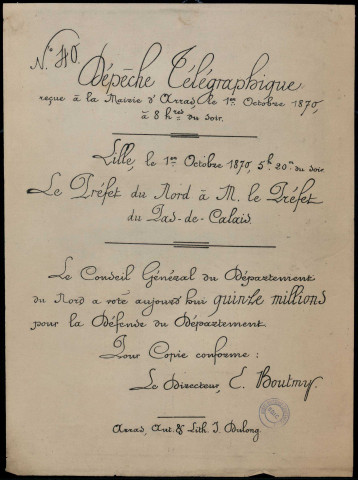 N.º 40.
Dépêche Télégraphique
reçue à la Mairie d'Arras, le 1er Octobre 1870,
à 8 hres du soir.
Lille, le 1er Octobre 1870, 5h 20m du soir
Le Préfet du Nord à M. le Préfet
du Pas-de-Calais.
Le Conseil Général du Département
du Nord a voté aujourd'hui quinze millions
pour la Défense du Département.
Pour Copie conforme :
Le Directeur, E. Boutmy.
Arras, Aut. & Lith. J. Dulong.